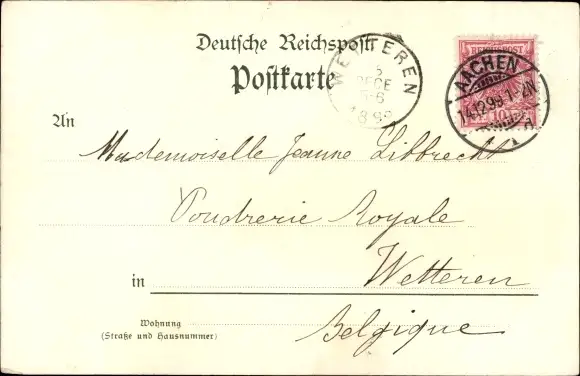 Deutsche Reichspost
Postkarte
WETTEREN
1898
REICHSPOST
10
AACHEN
14.12.98.1-2N.
An
Mademoiselle Jeanne Libbrecht
Poudrerie Royale
in Wetteren
Wohnung
(Straße und Hausnummer)
Belgique